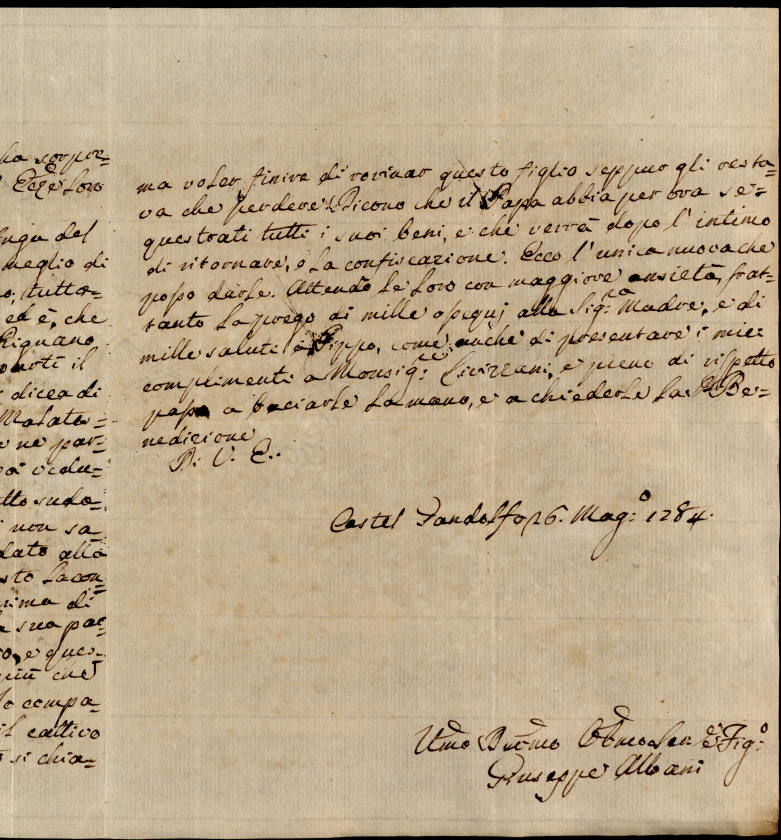 ha sorpre=
Ecc.e Loro
fuga del
meglio di
o, tutto=
ed è, che
Rignano
il
dicea di
Malata=
e ne par=
vedu=
tto sudo=
non sa=
dato alla
sto la con=
rima di
sua pa=
o, e ques=
più che
lo compa=
il cattivo
si chia=
ma voler finire di rovinar questo figlio seppur gli resta=
va che perdere. Dicono che il Papa abbia per ora se=
questrati tutti i suoi beni, e che verrà dopo l'intimo
di ritornare, o la confiscazione. Ecco l'unica nuova che
posso darle. Attendo le Loro con maggiore ansietà, frat=
tanto la prego di mille ossequj alla Sig.ra Madre, e di
mille saluti a Pippo, come anche di presentare i miei
complimenti a Monsig.re Civizzani, e pieno di rispetto
passo a baciarle la mano, e a chiederle la Be=
nedizione
D. V. E.
Castel Gandolfo 26. Mag.o 1784.
Umo Dvmo Obmo Ser. e Fig.o
Giuseppe Albani